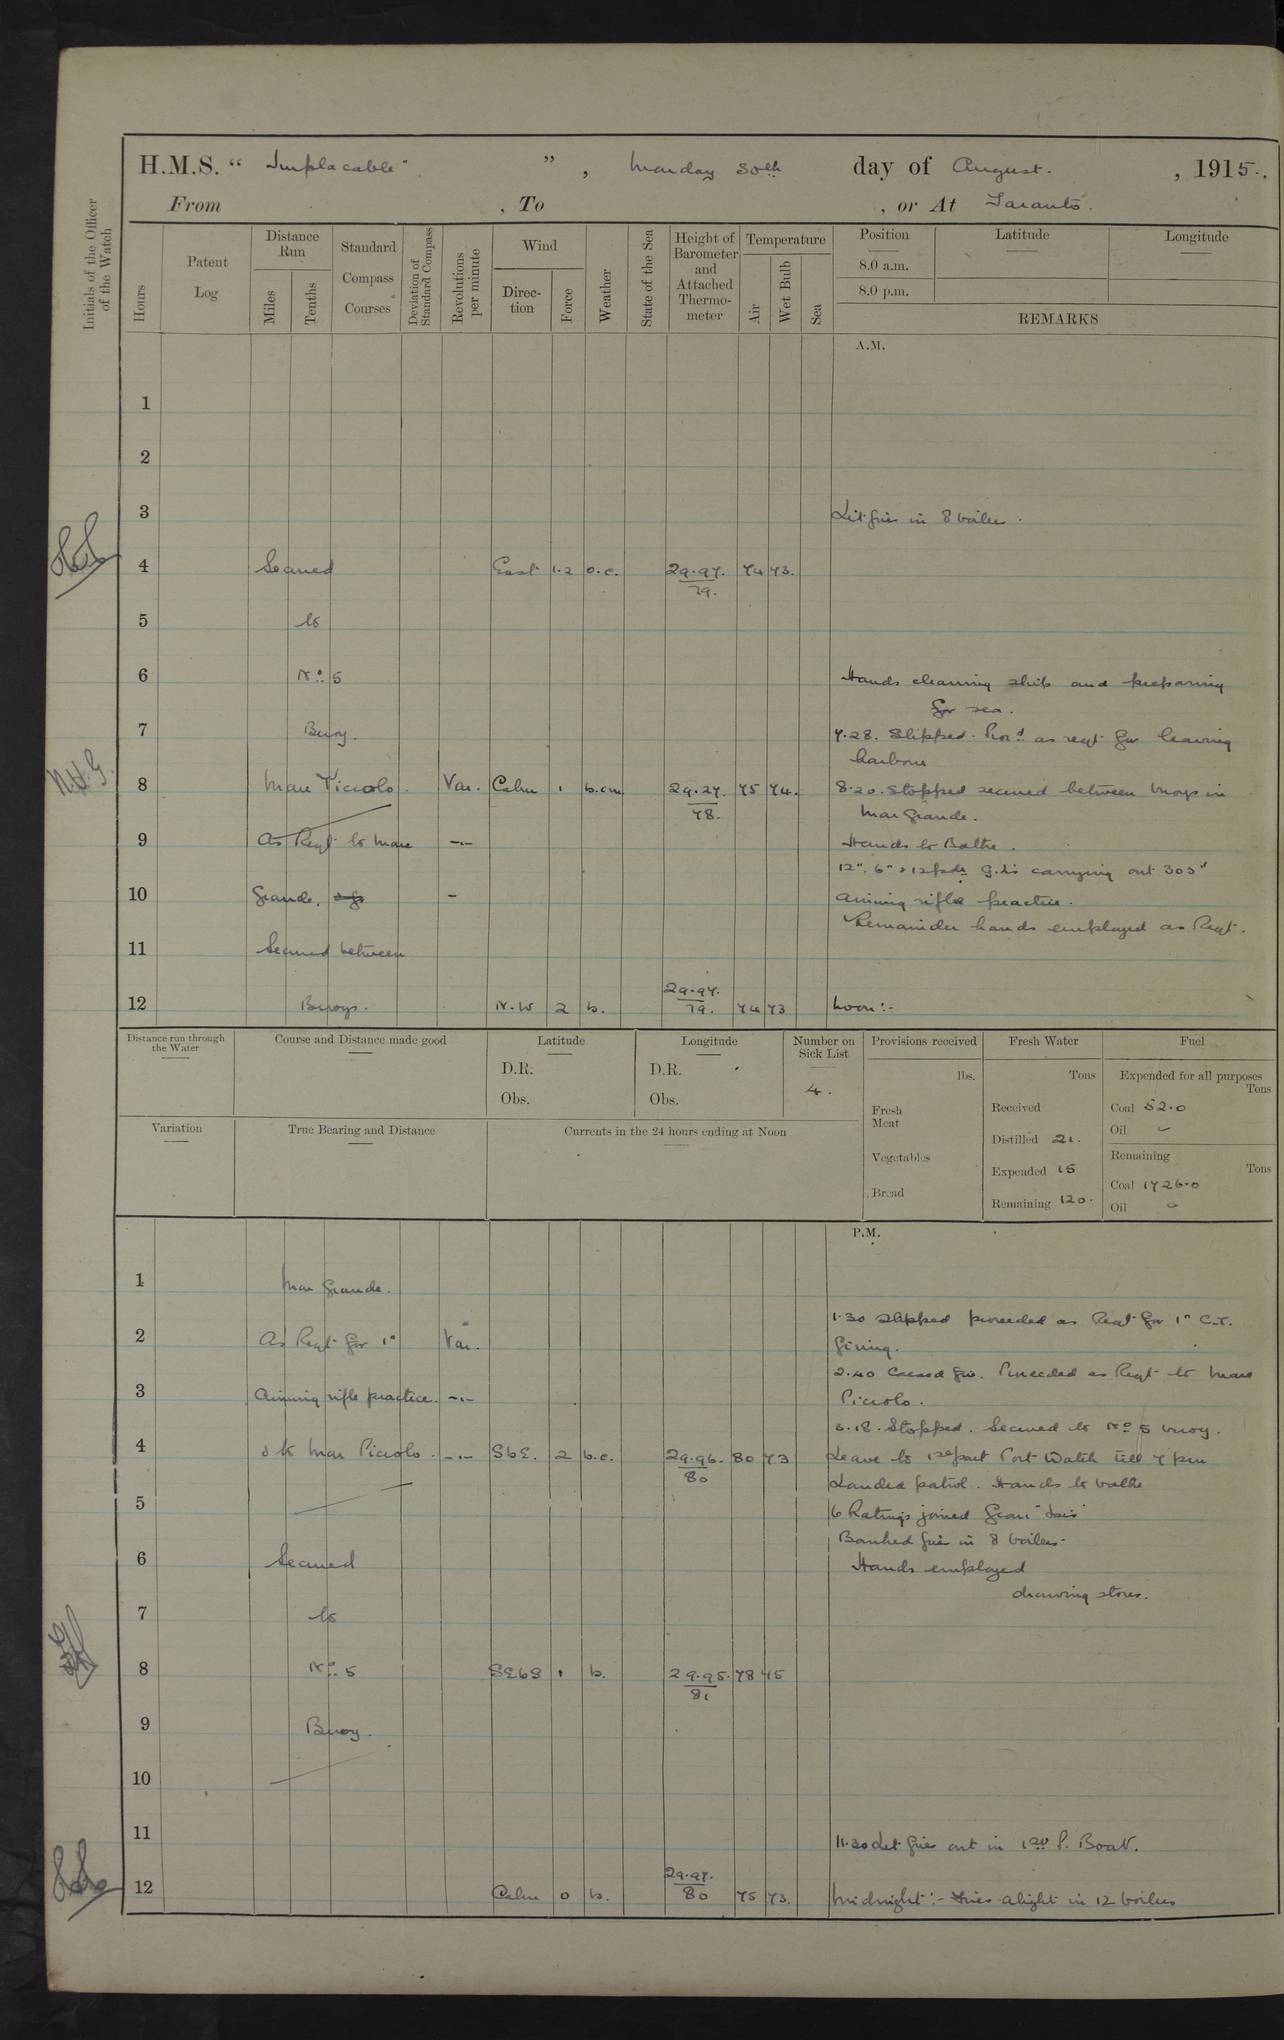 H.M.S. “ Implacable ” , Monday 30th day of August. , 1915.
From , To , or At Taranto.
Initials of the Officer of the Watch
Hours
Patent Log
Distance Run
Miles
Tenths
Standard Compass Courses
Deviation of Standard Compass
Revolutions per minute
Wind
Direction
Force
Weather
State of the Sea
Height of Barometer and Attached Thermometer
Temperature
Air
Wet Bulb
Sea
Position Latitude Longitude
8.0 a.m.
8.0 p.m.
REMARKS
A.M.
1
2
3 Lit fires in 8 boilers.
4 Secured East 1.2 o.c. 29.97. 79. 74 73.
5 to
6 No 5 Hands cleaning ship and preparing
for sea.
7 Buoy. 7.28. Slipped. Procd as reqt for leaving
harbour
8 Mare Piccolo. Var. Calm 1 b.cm 29.97. 78. 75 74. 8.20. Stopped secured between buoys in
Mar Grande.
9 As Reqt to Mare -"- Hands to Bathe.
12". 6" & 12pdr G.Ls carrying out 303"
10 Grande. - aiming rifle practice.
Remainder hands employed as Reqt.
11 Secured between
12 Buoys. N.W 2 b. 29.97. 79. 74 73 Noon:-
Distance run through the Water
Course and Distance made good
Latitude
D.R.
Obs.
Longitude
D.R.
Obs.
Number on Sick List
4.
Provisions received
lbs.
Fresh Meat
Vegetables
Bread
Fresh Water
Tons
Received
Distilled 21.
Expended 15
Remaining 120.
Fuel
Expended for all purposes
Tons
Coal 52.0
Oil
Remaining
Tons
Coal 1726.0
Oil
Variation
True Bearing and Distance
Currents in the 24 hours ending at Noon
P.M.
1 Mar Grande.
1.30 Slipped proceeded as Reqt for 1" C.T.
2 As Reqt for 1" Var. firing.
2.40 Ceased fire. Proceeded as Reqt to Mare
3 Aiming rifle practice. -"- Piccolo.
Stopped. Secured to No 5 buoy.
4 & to Mar Piccolo. -"- SbE. 2 b.c. 29.96. 80 80 73 Leave to 1st part Port Watch till 7 pm
Landed patrol. Hands to bathe
5 6 Ratings joined from
Banked fires in 8 boilers.
6 Secured Hands employed
drawing stores.
7 to
8 No 5 SEbS 1 b. 29.95. 81 78 75
9 Buoy.
10
11 11.30 Let fires out in 1st P. Boat.
12 Calm 0 b. 29.97. 80 75 73. Midnight:- Fires alight in 12 boilers